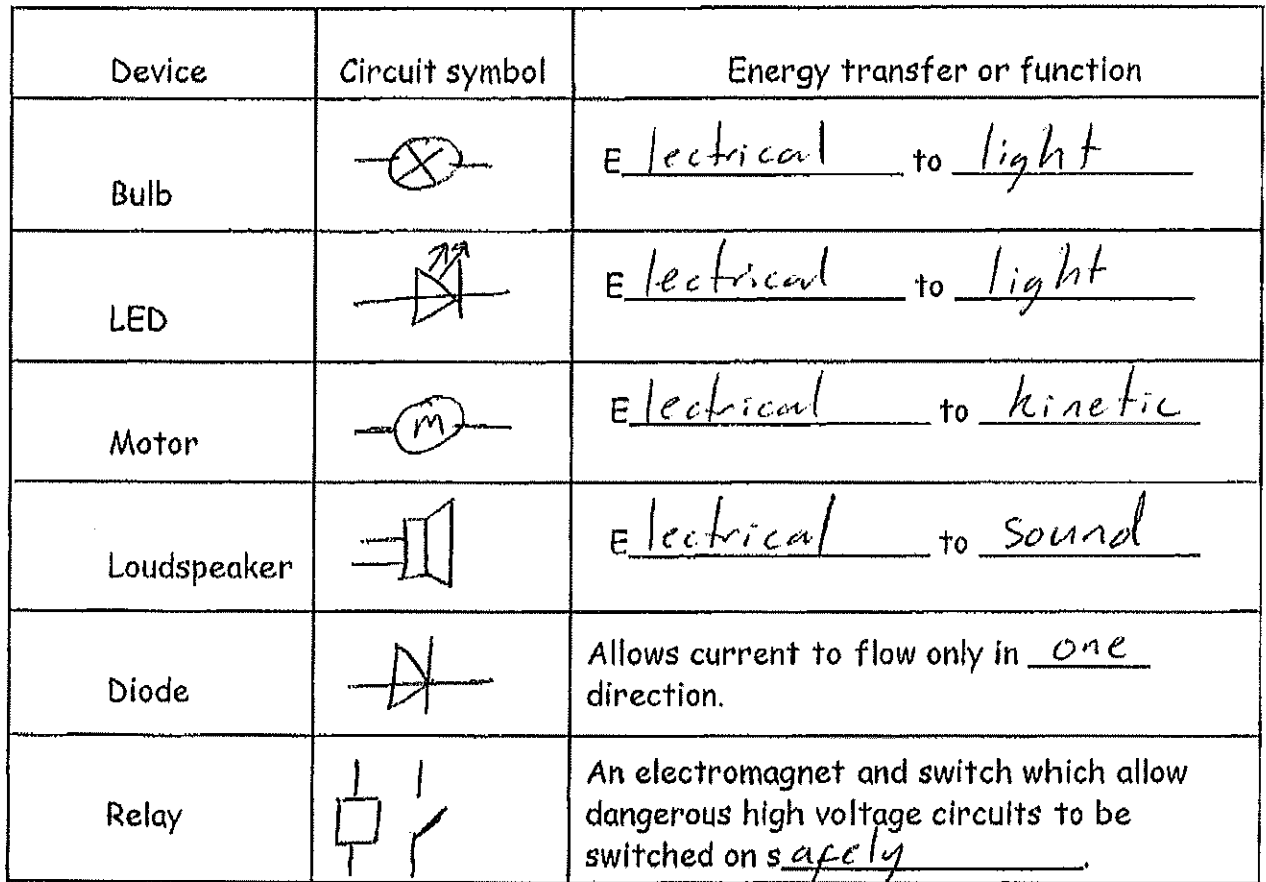 Device Circuit symbol Energy transfer or function
Bulb Electrical to light
LED Electrical to light
Motor M Electrical to kinetic
Loudspeaker Electrical to sound
Diode Allows current to flow only in one
direction.
Relay An electromagnet and switch which allow
dangerous high voltage circuits to be
switched on safely.